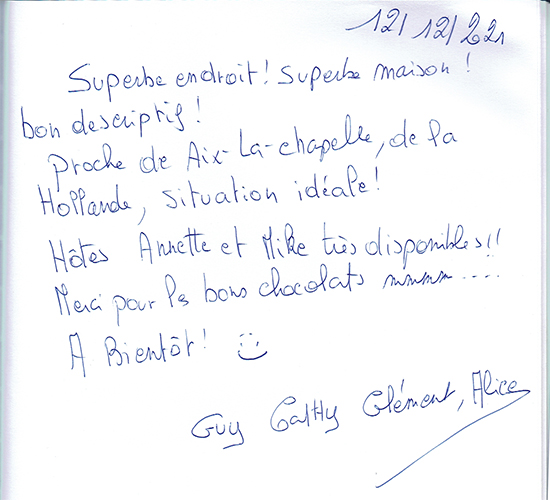 12/12/221
Superbe endroit! Superbe maison!
bon descriptif!
Proche de Aix-La-chapelle, de la
Hollande, situation idéale!
Hôtes Annette et Mike très disponibles!!
Merci pour les bons chocolats mmmm....
A Bientôt!
Guy Cathy Clément, Alice